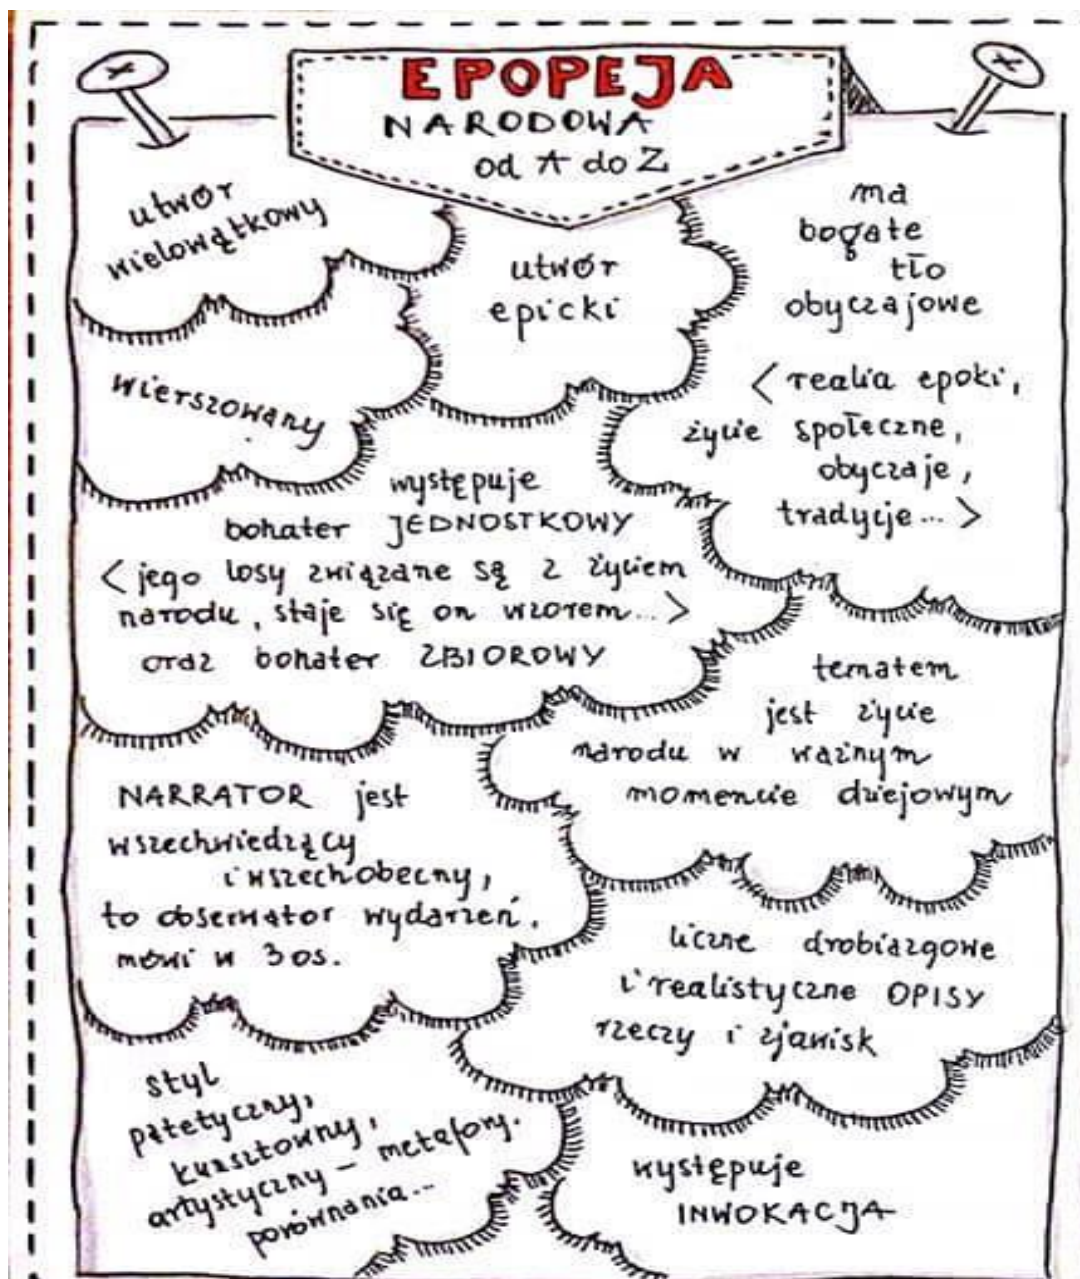 EPOPEJA
NARODOWA
od A do Z
utwór
wielowątkowy
utwór
epicki
ma
bogate
tło
obyczajowe
< realia epoki,
życie społeczne,
obyczaje,
tradycje... >
wierszowany
występuje
bohater JEDNOSTKOWY
< jego losy związane są z życiem
narodu, staje się on wzorem... >
oraz bohater ZBIOROWY
tematem
jest życie
narodu w ważnym
momencie dziejowym
NARRATOR jest
wszechwiedzący
i wszechobecny,
to obserwator wydarzeń,
mówi w 3 os.
liczne drobiazgowe
i realistyczne OPISY
rzeczy i zjawisk
styl
patetyczny,
kunsztowny,
artystyczny – metafory.
porównania...
występuje
INWOKACJA